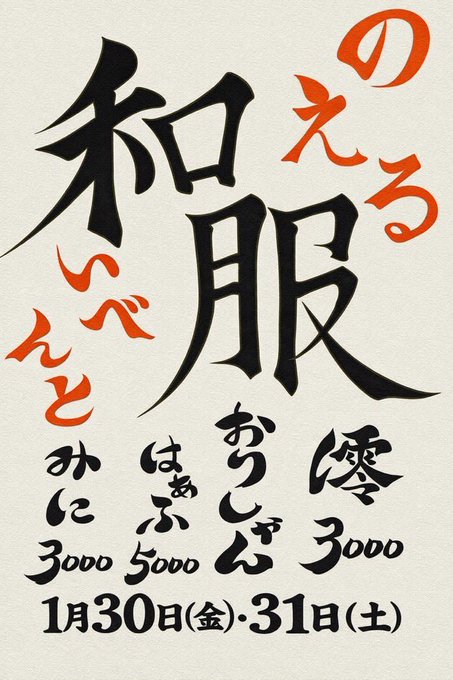 のえる
和服
いべんと
澪
3000
おりしゃん
はぁふ
5000
みに
3000
1月30日(金)・31日(土)